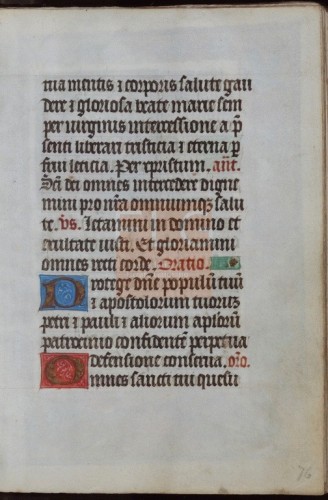 tua mentis ⁊ corporis salute gau
dere ⁊ gloriosa beate marie sem
per virginis intercessione a p̄
senti liberari tristicia ⁊ eterna ꝑ
frui leticia. Per cpristum. an̄t.
Sc̄i dei omnes intercedere digne
mini pro nr̄a omniumqꝫ salu
te. vs. Letamini in domino et
exultate iusti. Et gloriamini
omnes recti corde. Oratio.
Protege dn̄e populū tuū
⁊ apostolorum tuorum
petri ⁊ pauli ⁊ aliorum apl̄orū
patrocinio confidentē perpetua
defensione conserua. or̄o.
Omnes sancti tui quesu
76